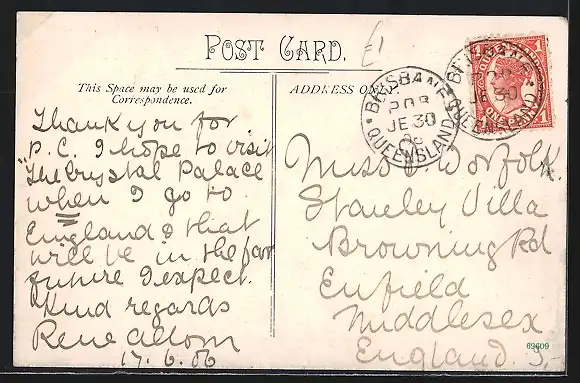 POST CARD.
£1
This Space may be used for
Correspondence.
ADDRESS ONLY
Thank you for
P.C. I hope to visit
"The Crystal Palace
when I go to
England & that
will be in the far
future I expect.
Kind regards
Rene
17.6.06
Miss Worfolk.
Stanley Villa
Browning Rd
Enfield
Middlesex
England.
BRISBANE
JE 30
06
QUEENSLAND
BRISBANE
30
QUEENSLAND
1
1
ONE PENNY
69609